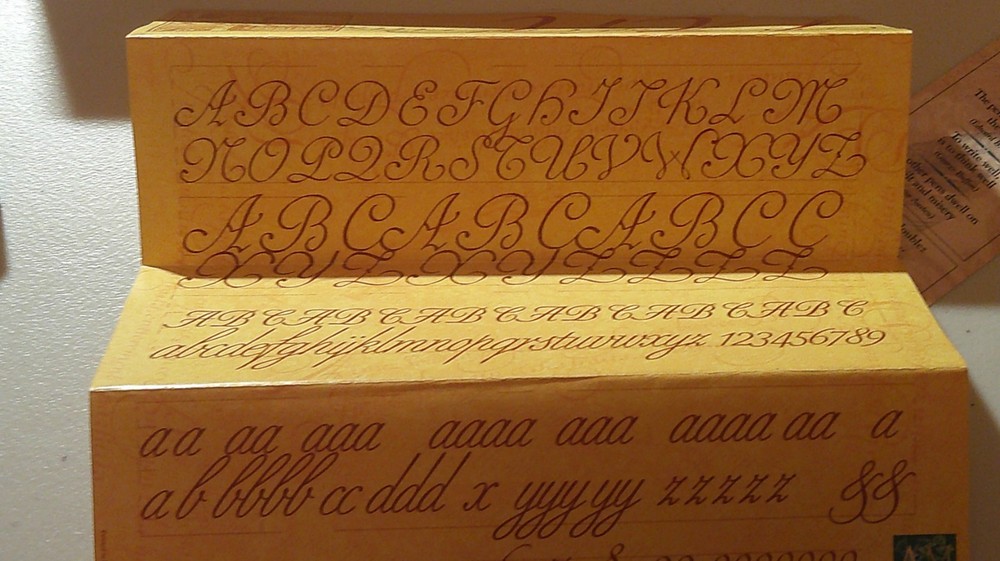 A B C D E F G H I J K L M
N O P Q R S T U V W X Y Z
A B C A B C A B C C
X Y Z X Y Z Z Z Z
A B C A B C A B C A B C A B C
abcdefghijklmnopqrstuvwxyz 123456789
aa aa aaa aaaa aaa aaaa aa a
a b bbbb cc ddd x yyy yy zzzzz &&
The p
To write well
is to think well
other pens dwell on
and misery